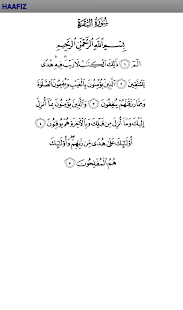 HAAFIZ
سُورَةُ البَقَرَةِ
بِسْمِ اللَّهِ الرَّحْمَٰنِ الرَّحِيمِ
الٓمٓ ۝١ ذَٰلِكَ الْكِتَابُ لَا رَيْبَ ۛ فِيهِ ۛ هُدًى
لِّلْمُتَّقِينَ ۝٢ الَّذِينَ يُؤْمِنُونَ بِالْغَيْبِ وَيُقِيمُونَ الصَّلَاةَ
وَمِمَّا رَزَقْنَاهُمْ يُنفِقُونَ ۝٣ وَالَّذِينَ يُؤْمِنُونَ بِمَا أُنزِلَ
إِلَيْكَ وَمَا أُنزِلَ مِن قَبْلِكَ وَبِالْآخِرَةِ هُمْ يُوقِنُونَ ۝٤
أُولَٰئِكَ عَلَىٰ هُدًى مِّن رَّبِّهِمْ ۖ وَأُولَٰئِكَ
هُمُ الْمُفْلِحُونَ ۝٥